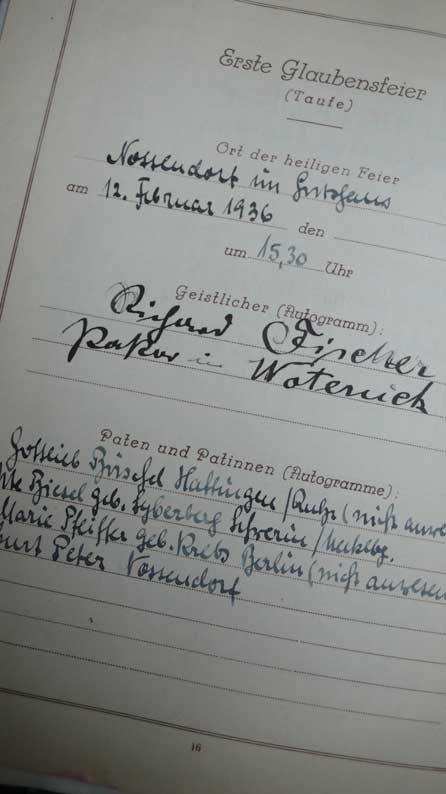 Erste Glaubensfeier
(Taufe)
Ort der heiligen Feier
Nossendorf im Gutshaus
am 12. Februar 1936 den
um 15,30 Uhr
Geistlicher (Autogramm):
Richard Fischer
Pastor in Wotenick
Paten und Patinnen (Autogramme):
Gottlieb Büschel Hattingen/Ruhr (nicht
geb. Syberberg Schwerin/Mecklbg.
Marie Pfeiffer geb. Krebs Berlin (nicht
Peter Nossendorf
16